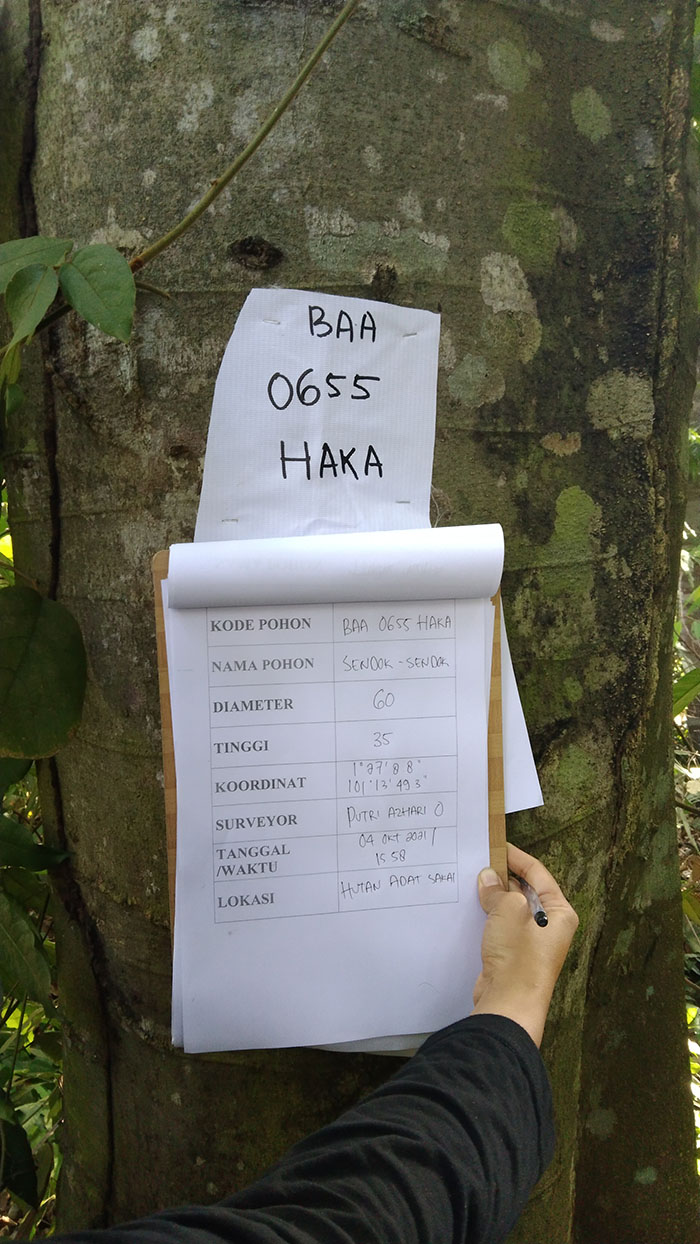 BAA
0655
HAKA
KODE POHON BAA 0655 HAKA
NAMA POHON SENDOK - SENDOK
DIAMETER 60
TINGGI 35
KOORDINAT 1° 27' 8 8"
101° 13' 49 3"
SURVEYOR PUTRI AZHARI O
TANGGAL 04 OKT 2021 /
/WAKTU 15 58
LOKASI HUTAN ADAT SAKAI